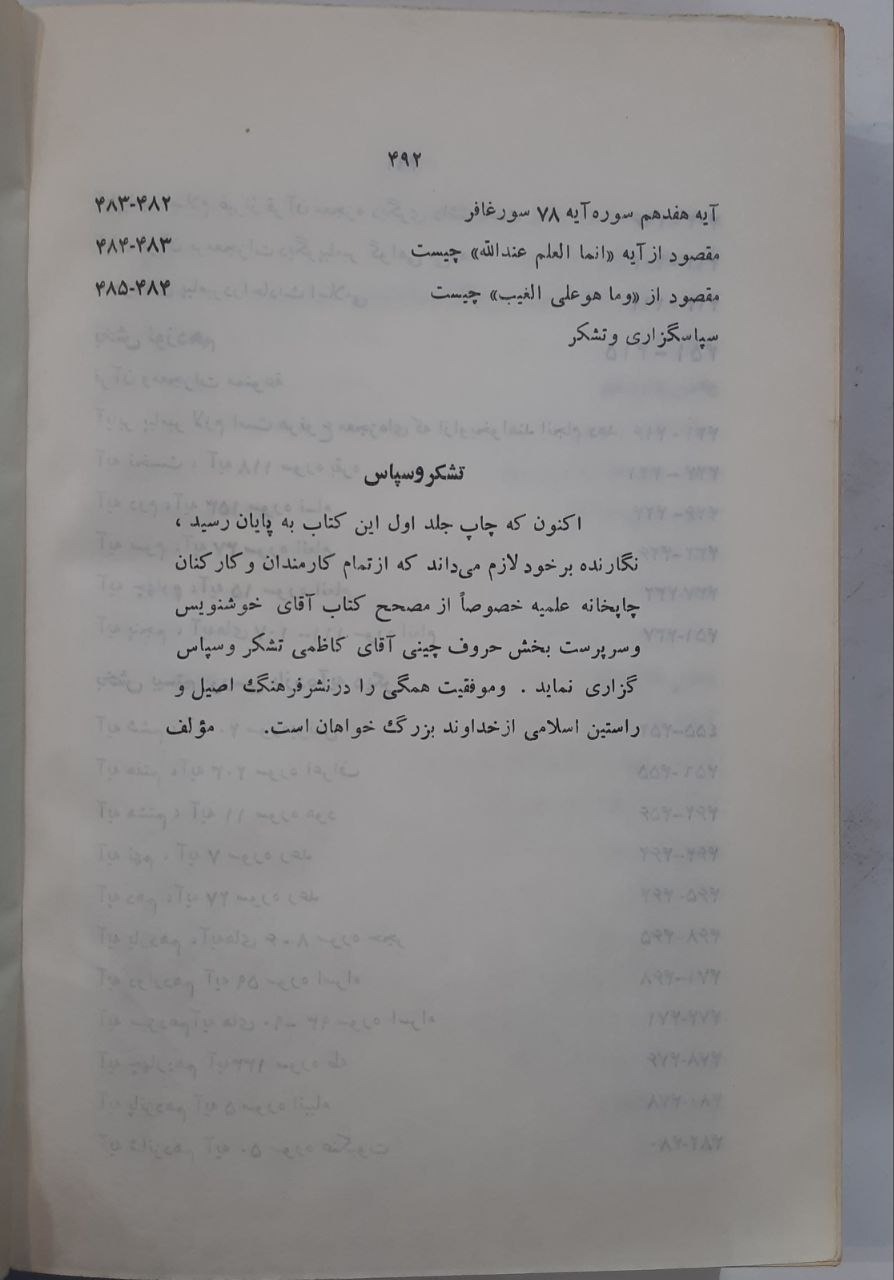 ۴۹۲
آیه هفدهم سوره آیه ۷۸ سورغافر ۴۸۳-۴۸۲
مقصود از آیه «انما العلم عندالله» چیست ۴۸۴-۴۸۳
مقصود از «وما هو علی الغیب» چیست ۴۸۵-۴۸۴
سپاسگزاری و تشکر
تشکر و سپاس
اکنون که چاپ جلد اول این کتاب به پایان رسید ،
نگارنده بر خود لازم می‌داند که از تمام کارمندان و کارکنان
چاپخانه علمیه خصوصاً از مصحح کتاب آقای خوشنویس
و سرپرست بخش حروف چینی آقای کاظمی تشکر و سپاس
گزاری نماید . و موفقیت همگی را در نشر فرهنگ اصیل و
راستین اسلامی از خداوند بزرگ خواهان است. مؤلف